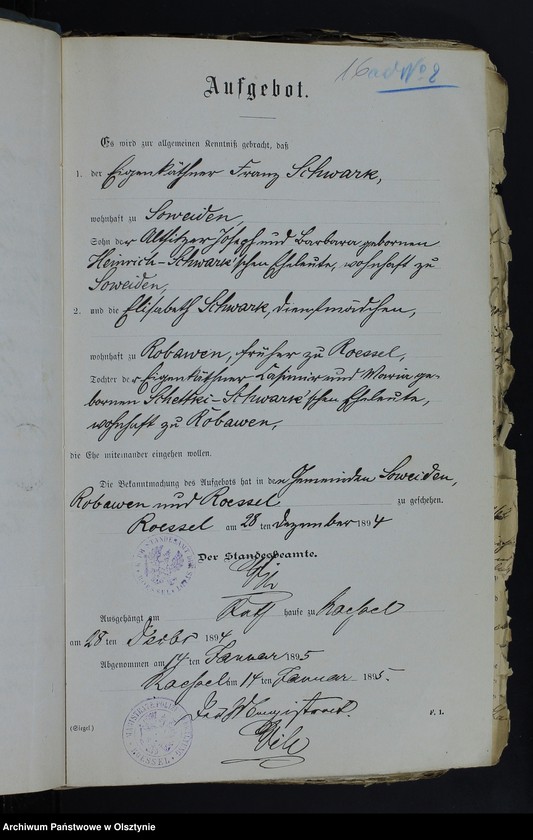 16 ad No 2
Aufgebot.
Es wird zur allgemeinen Kenntniß gebracht, daß
1. der Eigenkäthner Franz Schwark,
wohnhaft zu Soweiden,
Sohn der Altsitzer Joseph und Barbara gebornen
Heinrich-Schwark'schen Eheleute, wohnhaft zu
Soweiden,
2. und die Elisabeth Schwark, Dienstmädchen,
wohnhaft zu Robawen, früher zu Roessel,
Tochter der Eigenkäthner Casimir und Maria ge-
bornen Schettki-Schwark'schen Eheleute,
wohnhaft zu Robawen,
die Ehe miteinander eingehen wollen.
Die Bekanntmachung des Aufgebots hat in den Gemeinden Soweiden,
Robawen und Roessel zu geschehen.
Roessel am 28 ten Dezember 1894
Der Standesbeamte.
Ausgehängt am Rathhause zu Roessel
am 28 ten Dezbr 1894
Abgenommen am 14 ten Januar 1895
Roessel am 14 ten Januar 1895.
Der Magistrat.
(Siegel)
F. 1.
ROESSEL
© Archiwum Państwowe w Olsztynie